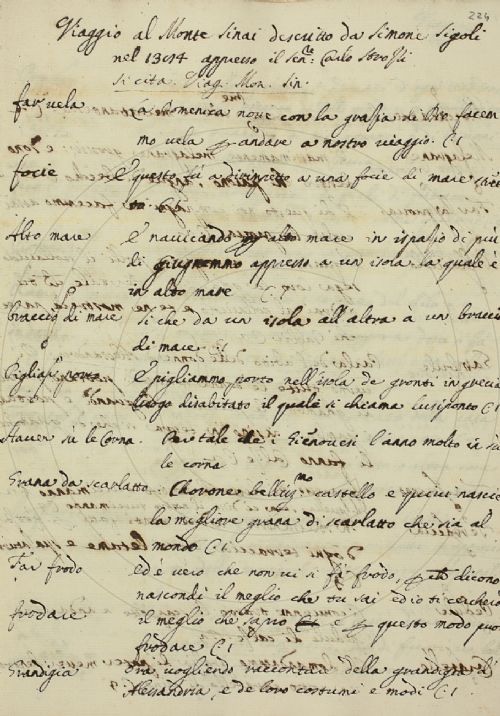 224
Viaggio al Monte Sinai descritto da Simone Sigoli
nel 1384 appresso il Sen.re Carlo Strozzi
Si cita. Viag. Mon. Sin.
far vela La domenica nove con la grazia di Dio facem
mo vela per andare a nostro viaggio. C1
focie E questo fu a dirimpetto a una focie di mare
C1
Alto mare E navicando per alto mare in ispazio di più
di giugnemmo appresso a un isola la quale è
in alto mare C1
braccio di mare Si che da un isola all'altra à un braccio
di mare C1
Pigliar porto E pigliammo porto nell'isola de gronti in grecia
luogo disabitato il quale si chiama lusiponto C1
Haver su le Corna. Per tale che i Gienovesi l'anno molto in su
le corna
Grana da scarlatto Chorone bellissmo castello e quivi nascie
la migliore grana di scarlatto che sia al
mondo C1
Far frodo ed è vero che non vi si fà frodo, dicono
nascondi il meglio che tu sai ed io ti cercherò
frodare il meglio che saprò e per questo modo può
frodare C1
Grandigia Ora vogliendo raccontare della grandigia d'
Alessandria, e de loro costumi e modi C1